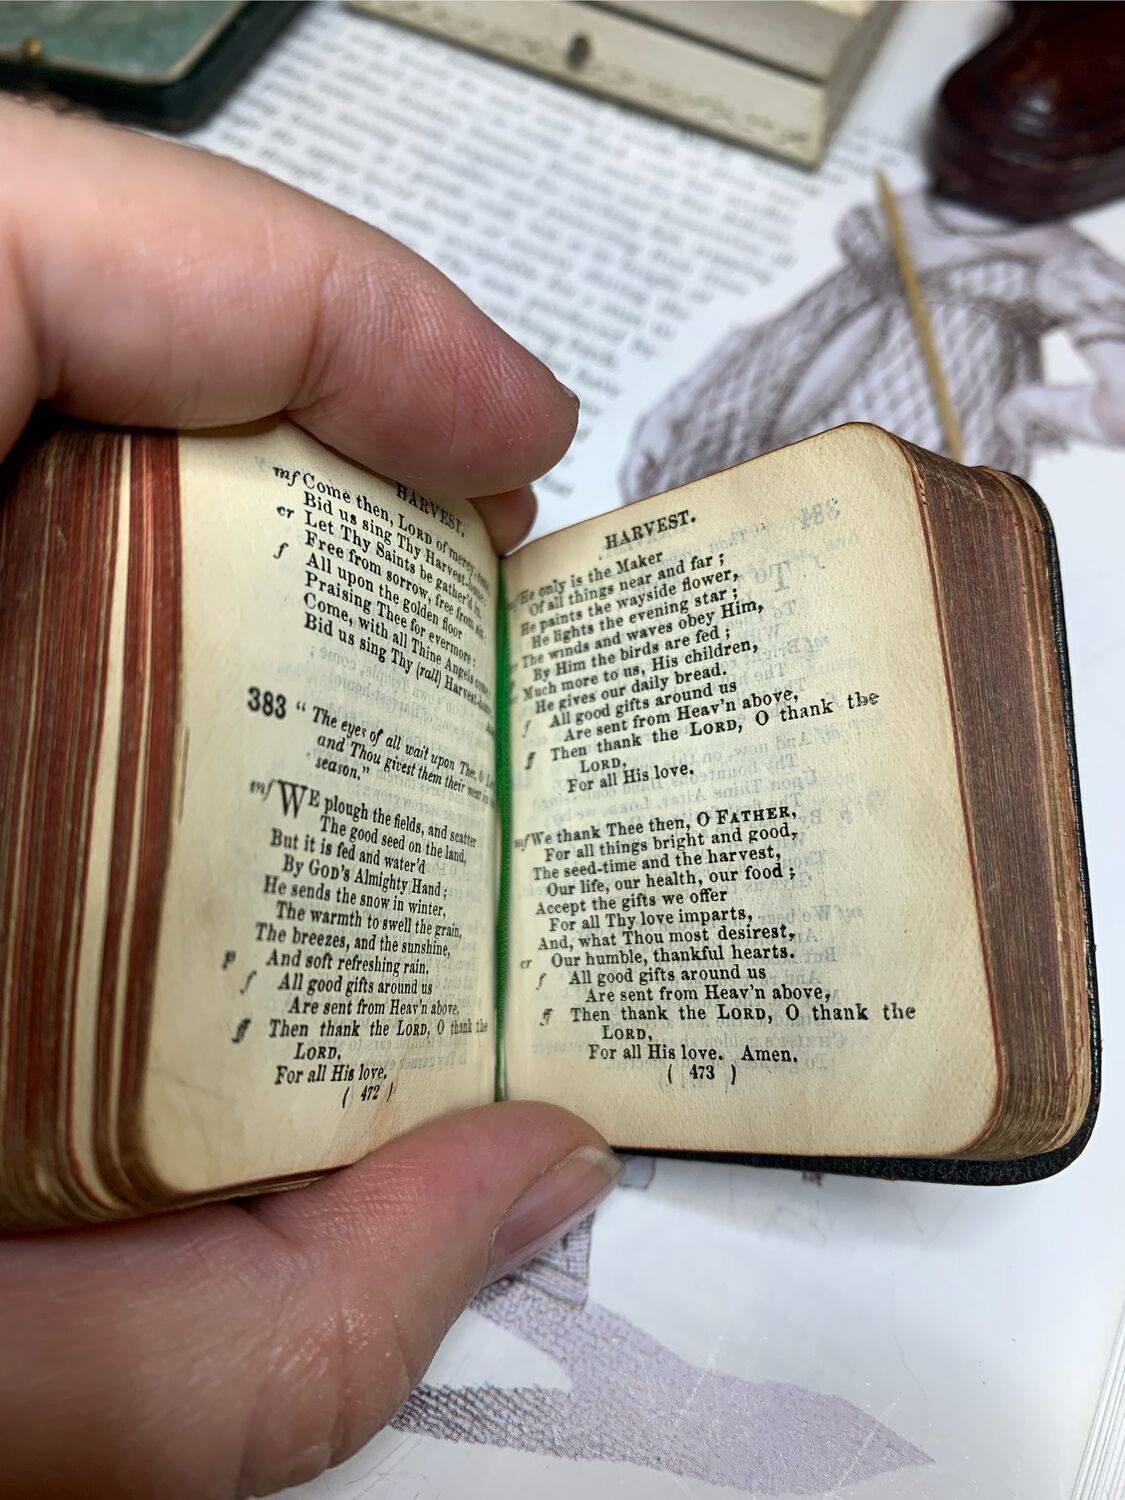 HARVEST.
mf Come then, LORD of mercy, come
Bid us sing Thy Harvest-home:
cr Let Thy Saints be gather'd in,
Free from sorrow, free from sin,
f All upon the golden floor
Praising Thee for evermore:
Come, with all Thine Angels come;
Bid us sing Thy (rall) Harvest-home.
383 “ The eyes of all wait upon Thee, O
and Thou givest them their meat in
season.”
mf WE plough the fields, and scatter
The good seed on the land,
But it is fed and water'd
By GOD'S Almighty Hand ;
He sends the snow in winter,
The warmth to swell the grain,
The breezes, and the sunshine,
p And soft refreshing rain.
f All good gifts around us
Are sent from Heav'n above,
ff Then thank the LORD, O thank the
LORD,
For all His love.
( 472 )
HARVEST.
He only is the Maker
Of all things near and far ;
He paints the wayside flower,
He lights the evening star ;
The winds and waves obey Him,
By Him the birds are fed ;
Much more to us, His children,
He gives our daily bread.
f All good gifts around us
Are sent from Heav'n above,
ff Then thank the LORD, O thank the
LORD,
For all His love.
mf We thank Thee then, O FATHER,
For all things bright and good,
The seed-time and the harvest,
Our life, our health, our food ;
Accept the gifts we offer
For all Thy love imparts,
And, what Thou most desirest,
cr Our humble, thankful hearts.
f All good gifts around us
Are sent from Heav'n above,
ff Then thank the LORD, O thank the
LORD,
For all His love. Amen.
( 473 )